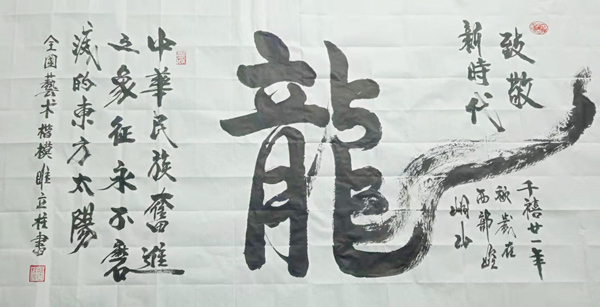 致敬
新時代
千禧廿一年
秋歲在
西部
龍
中華民族奮進
之象征永不磨
滅的東方太陽
全国藝术楷模睢立柱書